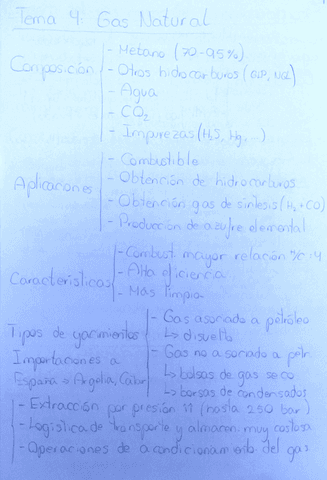 Tema 4: Gas Natural
- Metano (70-95%)
Composición - Otros hidrocarburos (GLP, NGL)
- Agua
- CO2
- Impurezas (H2S, Hg, ...)
- Combustible
Aplicaciones - Obtención de hidrocarburos
- Obtención gas de síntesis (H2 + CO)
- Producción de azufre elemental
- Combust. mayor relación
Características - Alta eficiencia
- Más limpio
Tipos de yacimientos - Gas asociado a petróleo
↳ disuelto
Importaciones a - Gas no asociado a petr.
España → Argelia, Catar ↳ bolsas de gas seco
↳ bolsas de condensados
- Extracción por presión ↑↑ (hasta 250 bar)
- Logística de transporte y almacen. muy costosa
- Operaciones de acondicionamiento del gas